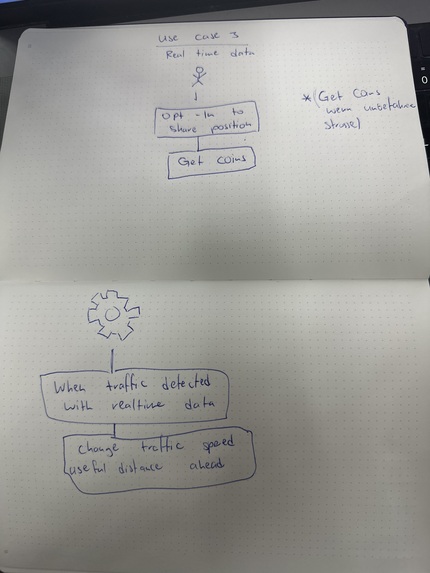 Use case 3
Real time data
Opt-In to
share position
Get coins
*(Get Coins
wenn unbefahrene
Strasse)
When traffic detected
with realtime data
Change traffic speed
useful distance ahead